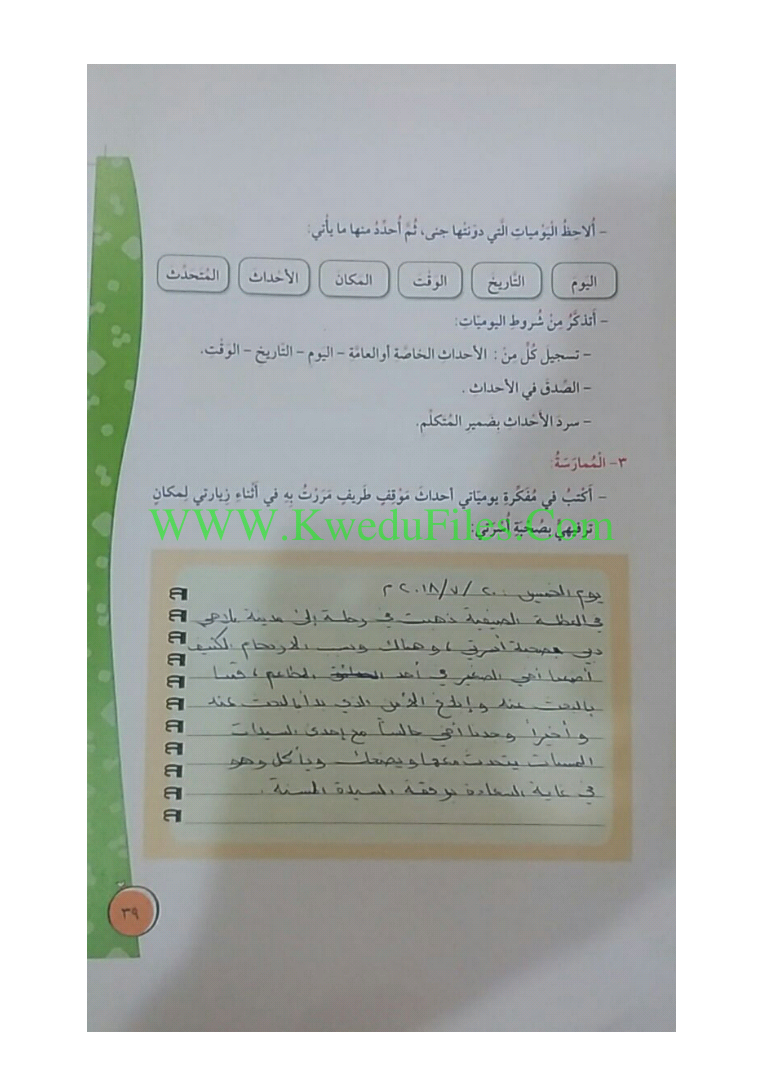 - أُلاحِظُ الْيَوْمياتِ الَّتي دوّنَتْها جنى، ثُمَّ أُحدِّدُ منها ما يأْتي:
اليَومَ التَّاريخَ الوَقْتَ المَكانَ الأحْداثَ المُتحدِّثَ
- أَتذكَّرُ مِنْ شُروطِ اليوميّاتِ:
- تسجيلَ كُلِّ مِنْ : الأحداثِ الخاصّة أوالعامَّة - اليوم - التَّاريخِ - الوَقْتِ.
- الصِّدقَ في الأحداثِ .
- سردَ الأَحْداثِ بِضَميرِ المُتكلِّم.
٣- الْمُمارَسَةُ:
- أَكْتبُ في مُفَكِّرةِ يوميّاتي أحداثَ مَوْقِفٍ طَريفٍ مَرَرْتُ بِهِ في أَثْناءِ زِيارتي لِمكانٍ
تَرفيهيٍّ بِصُحْبَةِ أُسْرَتي:
WWW.KweduFiles.Com
يوم الخميس ٢٠ /٧/ ٢٠١٨ م
في العطلة الصيفية ذهبت في رحلة إلى مدينة ملاهي
دبي بصحبة أسرتي ، وهناك وبسبب الازدحام الكثيف
أضعنا أخي الصغير في أحد المطاعم ، قمنا
بالبحث عنه وإبلاغ الأمن الذي بدأ البحث عنه
وأخيراً وجدنا أخي جالساً مع إحدى السيدات
المسنات يتحدث معها ويضحك ويأكل وهو
في غاية السعادة برفقة السيدة المسنة .
٣٩